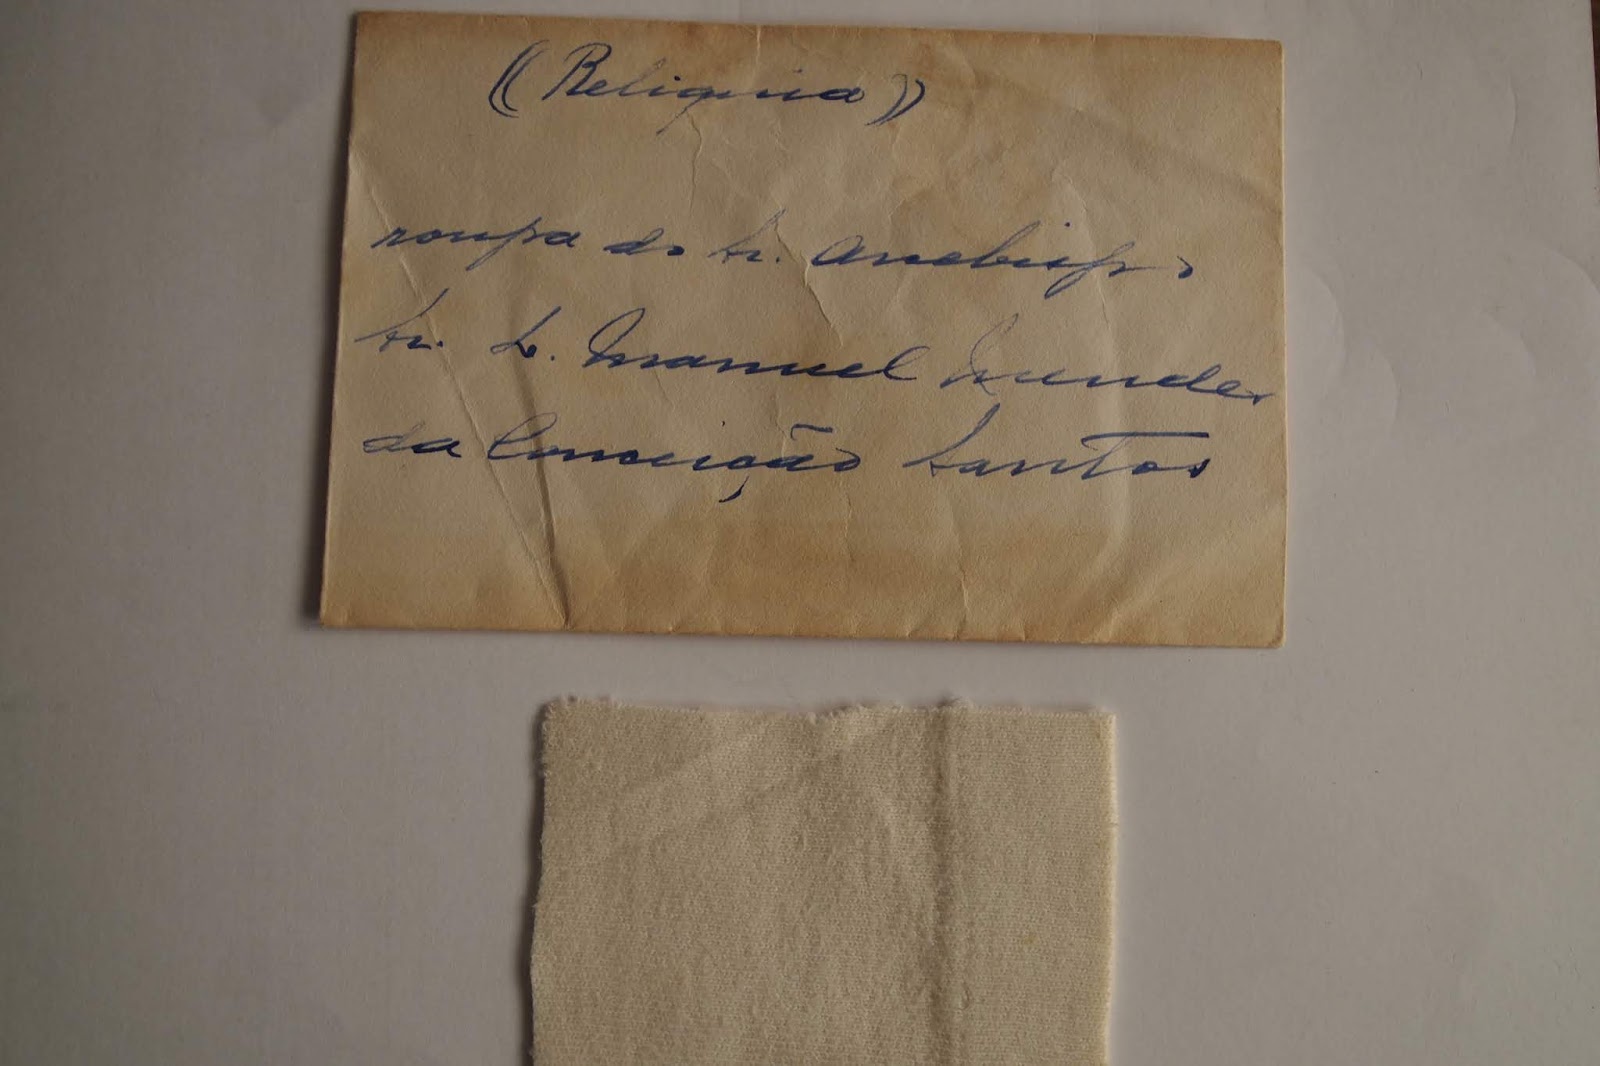 ((Reliquia))
roupa do Sr. Arcebispo
Sr. D. Manuel Mendes
da Conceição Santos